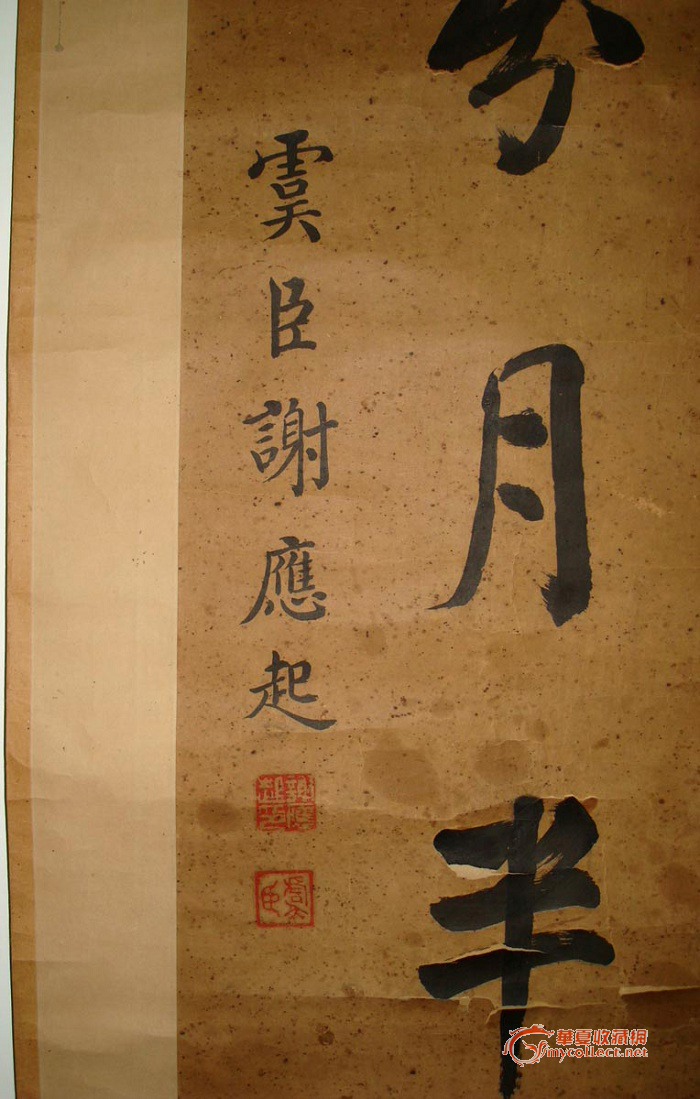 分月半
虞臣謝應起
謝應起印
虞臣
華夏收藏網
mycollect.net